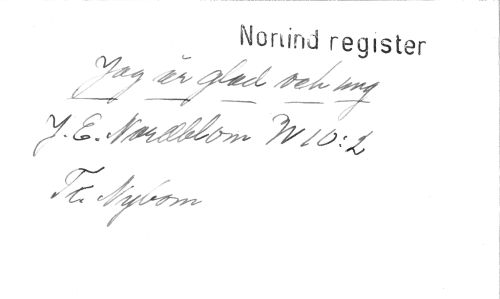 Norlind register
Jag är glad och ung
J. E. Nordblom W 10:2
Fr. Nybom